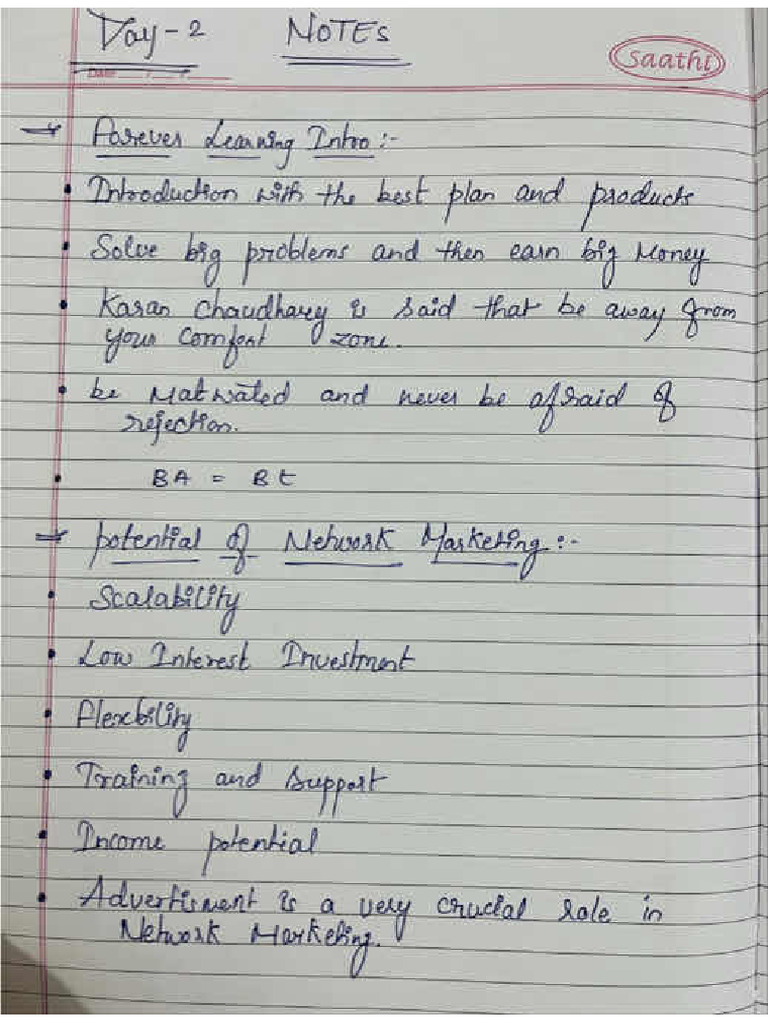 Day-2 NOTES
Saathi
Date
→ Forever Learning Intro :-
• Introduction with the best plan and products
• Solve big problems and then earn big Money
• Karan Chaudharey is said that be away from
your Comfort zone.
• be Motivated and never be afraid of
rejection.
• BA = Bt
→ potential of Network Marketing :-
• Scalability
• Low Interest Investment
• Flexbility
• Training and Support
• Income potential
• Advertisment is a very crucial role in
Network Marketing.